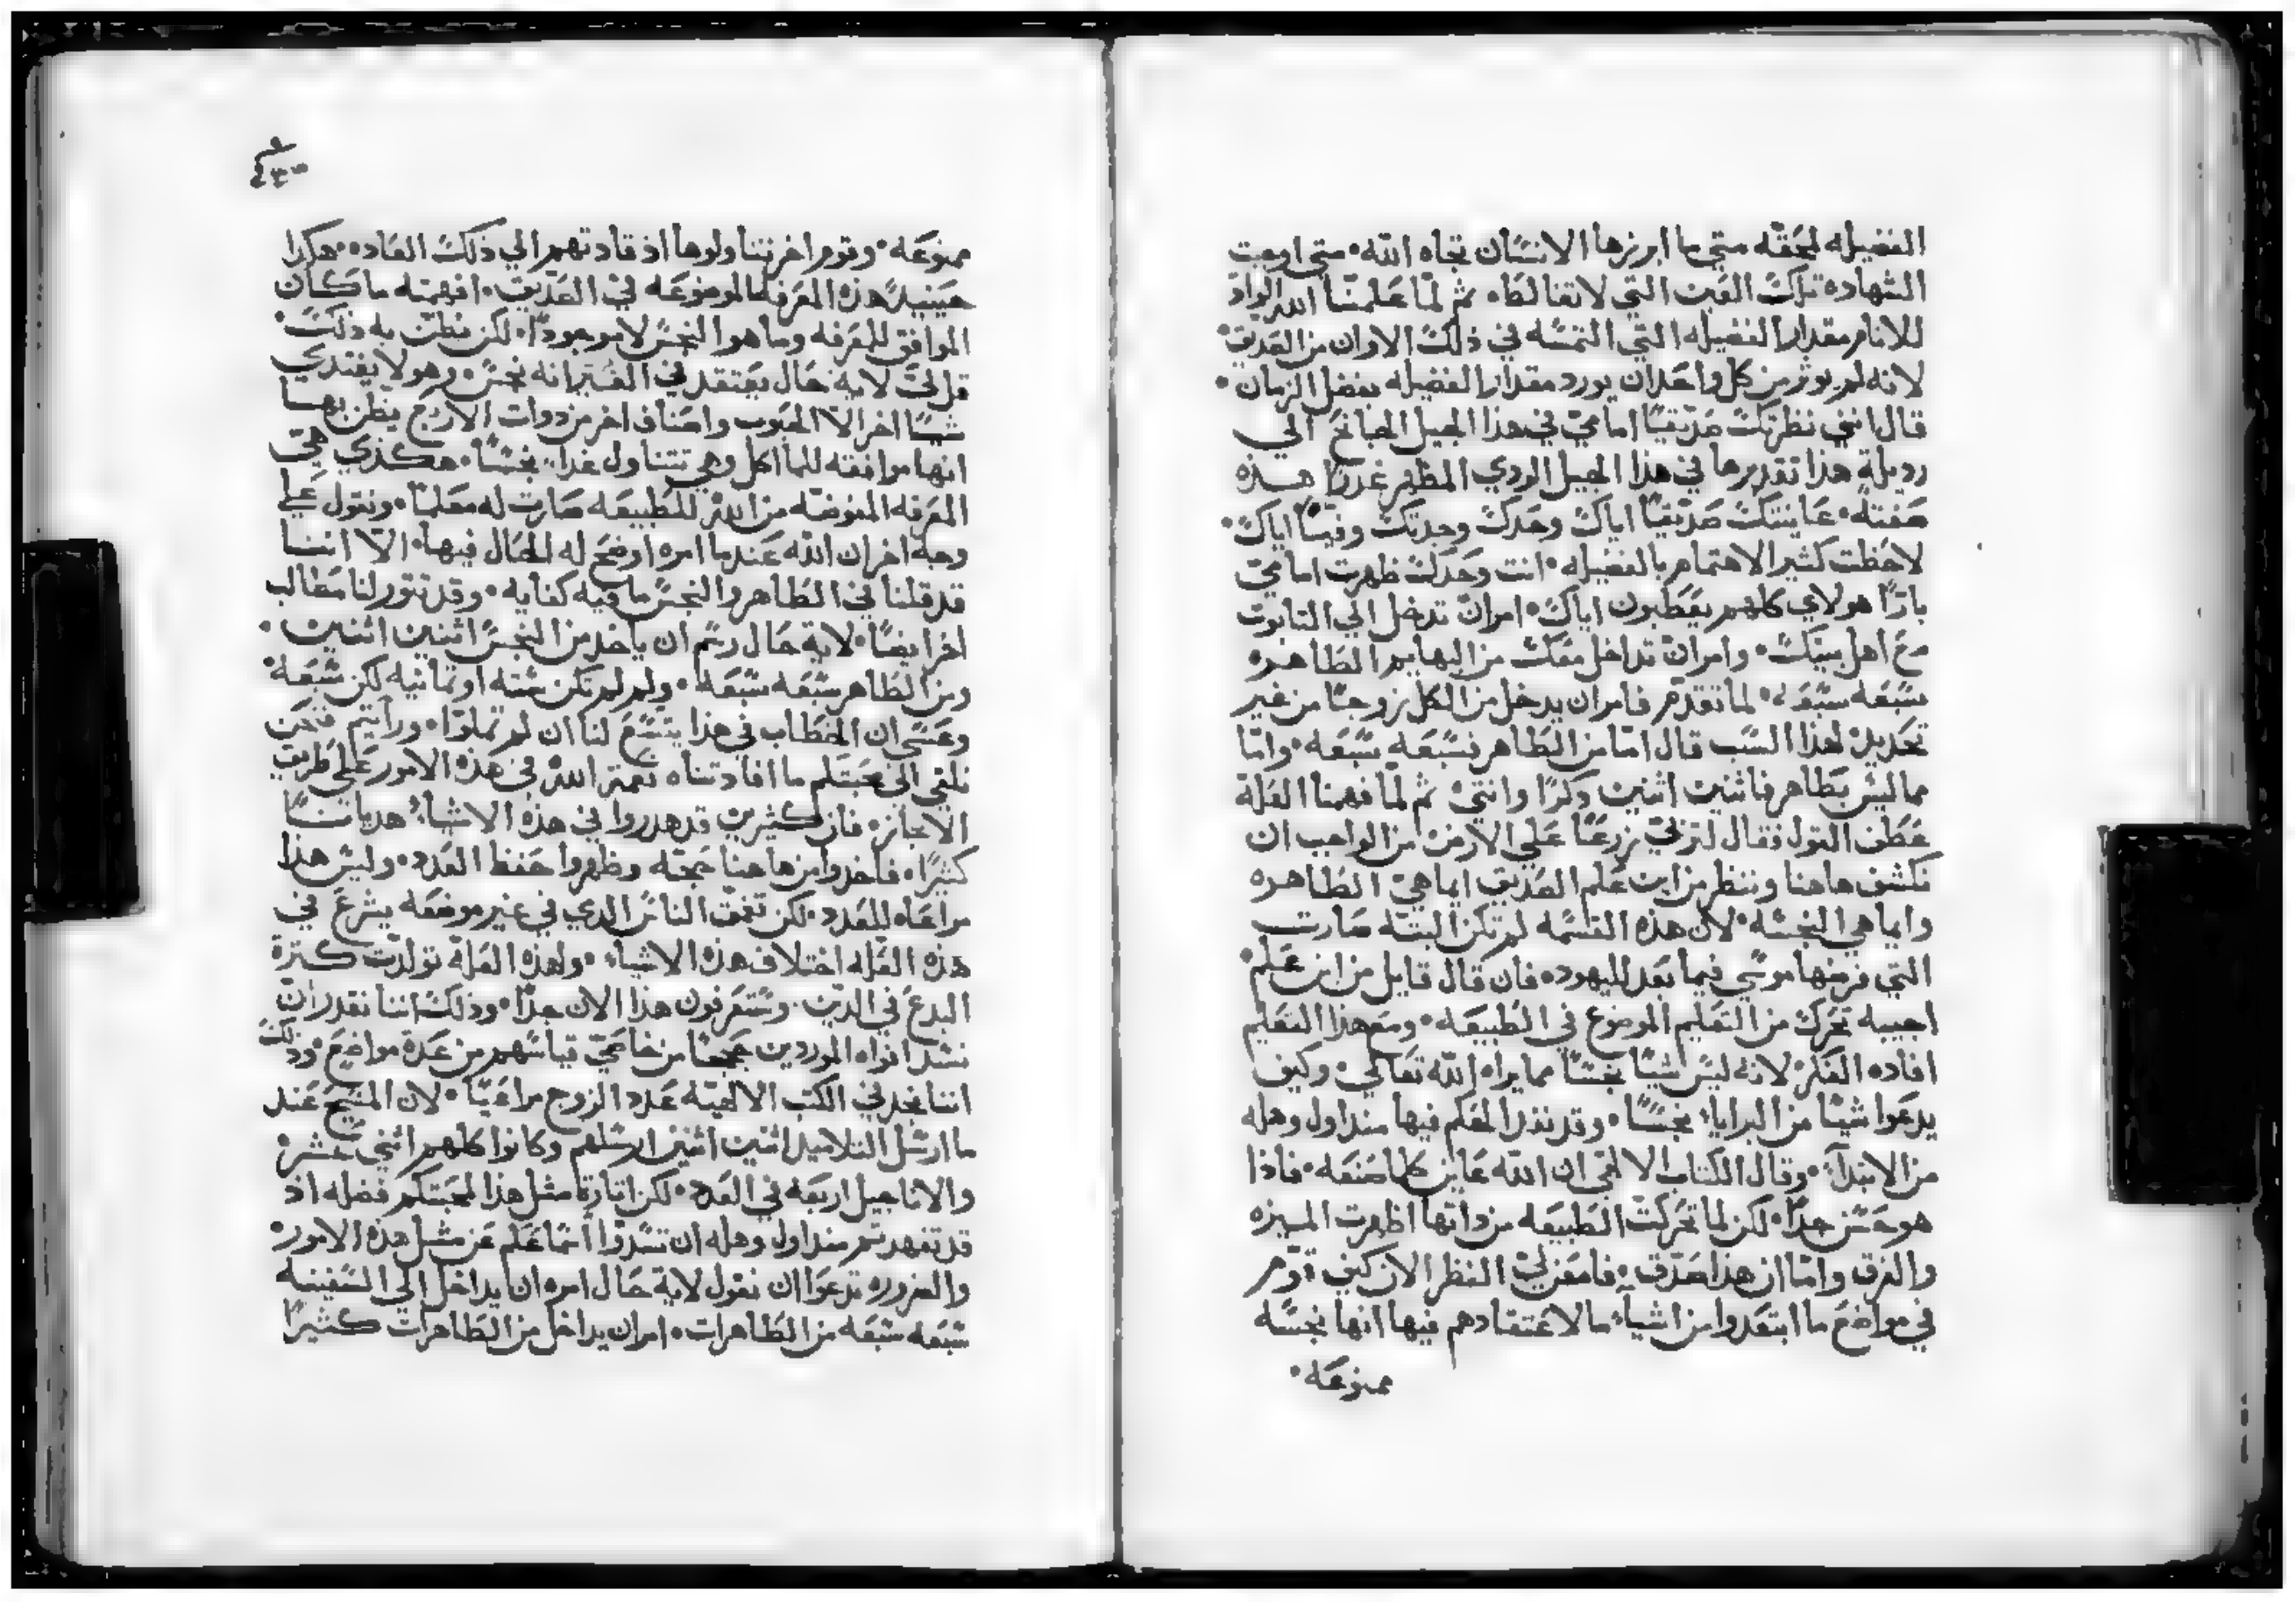 الفضيله لمحقّه متي ما ابرزها الانسان تجاه الله · متي اوعبت
الشهاده تلك العين التي لا تغالطا · ثم لمّا علمنا الله الواد
للانام مقدار الفضيله التي التمسه في ذلك الاوان من الصديق ·
لانه لم يوثر من كل واحد ان يورد مقدار الفضيله بفضل الزمان ·
قال انني نظرتك صدّيقًا امامي في هذا الجيل الصانخ الي
رديلة هذا تقديرها في هذا الجيل الردي المظهر غدرًا هذه
صفته · عاينتك صدّيقًا اياك وحدك وجدتك وفيًا اياك ·
لاحظت كثير الاهتمام بالفضيله · انت وحدك ظهرت امامي
بارًا هولاي كلهم يعطبون اياك · امران تدخل الي التابوت
مع اهل بيتك · وامران تداخل معك من البهايم الطاهره
سبعه سبعه · لما تقدّم فامر ان يدخل من الكل زوجًا من غير
تحديد لهذا السبب قال امّا من الطاهر فسبعه سبعه · وامّا
مما ليس بطاهر فاثنين اثنين ذكرًا وانتي · ثم لمّا فهمنا العلة
عطف القول فقال لتربي زرعًا علي الارض من الواجب ان
نكشف هاهنا وننظر من اين علم الصديق ايما هي الطاهره
وايما هي النجسه · لان هذه القسمه لم تكن البته صارت
التي فرضها موسي فيما بعد لليهود · فان قال قايل من اين علم ·
اجيبه تحرك من التعليم الموضوع في الطبيعه · ومع هذا التعليم
افاده الفكر · لانه ليس شيًا نجسًا مما يراه الله تعالي · وكيف
يدعوا شيًا من البرايا نجسًا · وقد نفذ الحكم فيها منذ اول وهله
من الابتدآء · وقال الكتاب الالهي ان الله عاين كلما صنعه · فاذا
هو حسن جدًا · لكن لما تحركت الطبيعه من ذاتها اظهرت الميزه
والفرق وامّا ان هذا صدق · فامعن لي النظر الان كيف قوم
في مواضع ما ابتعدوا من اشيآء ما لاعتقادهم فيها انها نجسه
ممنوعه ·
ممنوعه · وقوم اخر نتناولوها اذ قادتهم الي ذلك العاده · هكذا
حينيذٍ هذه المعرفه الموضوعه في الصدّيق · افهمته ما كان
الموافق للمعرفه وما هو النجس لا موجودًا · لكن يظنّ به ذلك ·
قل لي لاية حال يعتقد في انه نجس · وهو لا يغتدي
شيًا اخر الّا الحبوب واصناف اخر من دوات الاربع يظن بها
انها موافقه للماكل وهي تتناول غداء نجسًا · هكذي هي
المعرفه المفوضه من الله للطبيعه صارت له معلمًا · ونقول علي
وجه اخر ان الله عندما امره اوضح له الحال فيها · الّا اننا
قد قلنا في الطاهر والنجس ما فيه كفايه · وقد تتور لنا مطالب
اخر ايضًا · لاية حال رسم ان ياخد من النجس اثنين اثنين ·
ومن الطاهر سبعه سبعه · ولم لم تكن سته او تمانيه لكن سبعه ·
وعسي ان الخطاب في هذا يتسع لنا ان لم تملوّا · ورايتم فنحن
نلقي الي محبتكم ما افادتناه نعمة الله في هذه الامور علي طريق
الايجاز · فان كثيرين قد هدروا في هذه الاشيآء هديانًا
كثيرًا · فاخدوا من هاهنا حجه وظهروا حفظ العدد · وليس هذا
مراعاه للعدد · لكن تعمق الناس الدي في غير موضعه يشرع في
هذه العله اختلاف هذه الاشياء · ولهذه العلة تولدت كترة
البدع في الدين · وستعرفون هذا الان جدًا · وذلك اننا نقدر ان
نسد افواه الموردين حججًا من خاصي قياسهم من عدة مواضع · وذلك
اننا نجد في الكتب الالهيّه عدد الزوج مراعيًا · لان المسيح عند
ما ارسل التلاميد اثنين اثنين ارسلهم وكانوا كلهم اثني عشر ·
والاناجيل اربعه في العدد · لكن مثل هذا لمحبتكم فضله اذ
قد تعهدتم منذ اول وهله ان تسدّوا اسماعكم عن مثل هذه الامور ·
والضروره تدعوا ان نقول لاية حال امره ان يداخل الي السفينه
سبعه سبعه من الطاهرات · امران يداخل من الطاهرات كثيرًا